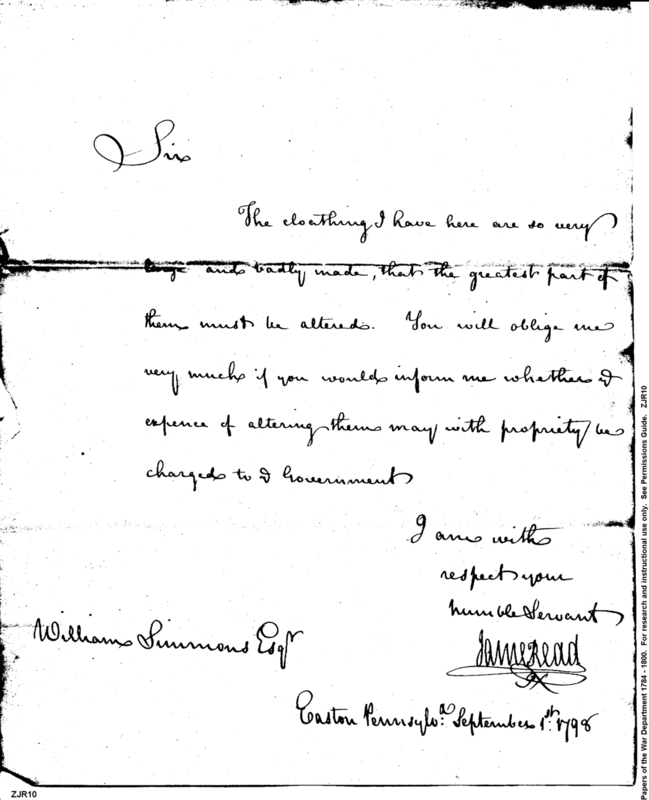 Sir
The cloathing I have here are so very
large and badly made, that the greatest part of
them must be altered. You will oblige me
very much if you would inform me whether ye
expence of altering them may with propriety be
charged to ye Government
I am with
respect your
humble Servant
James Read
William Simmons Esqr
Easton Pennsylva. September 1st. 1798
ZJR10
Papers of the War Department 1784 - 1800. For research and instructional use only. See Permissions Guide. ZJR10